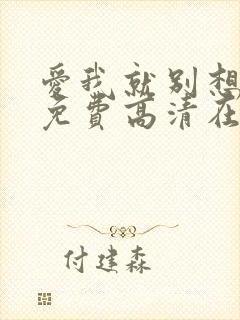 愛我就別想
免費高清在
付建森